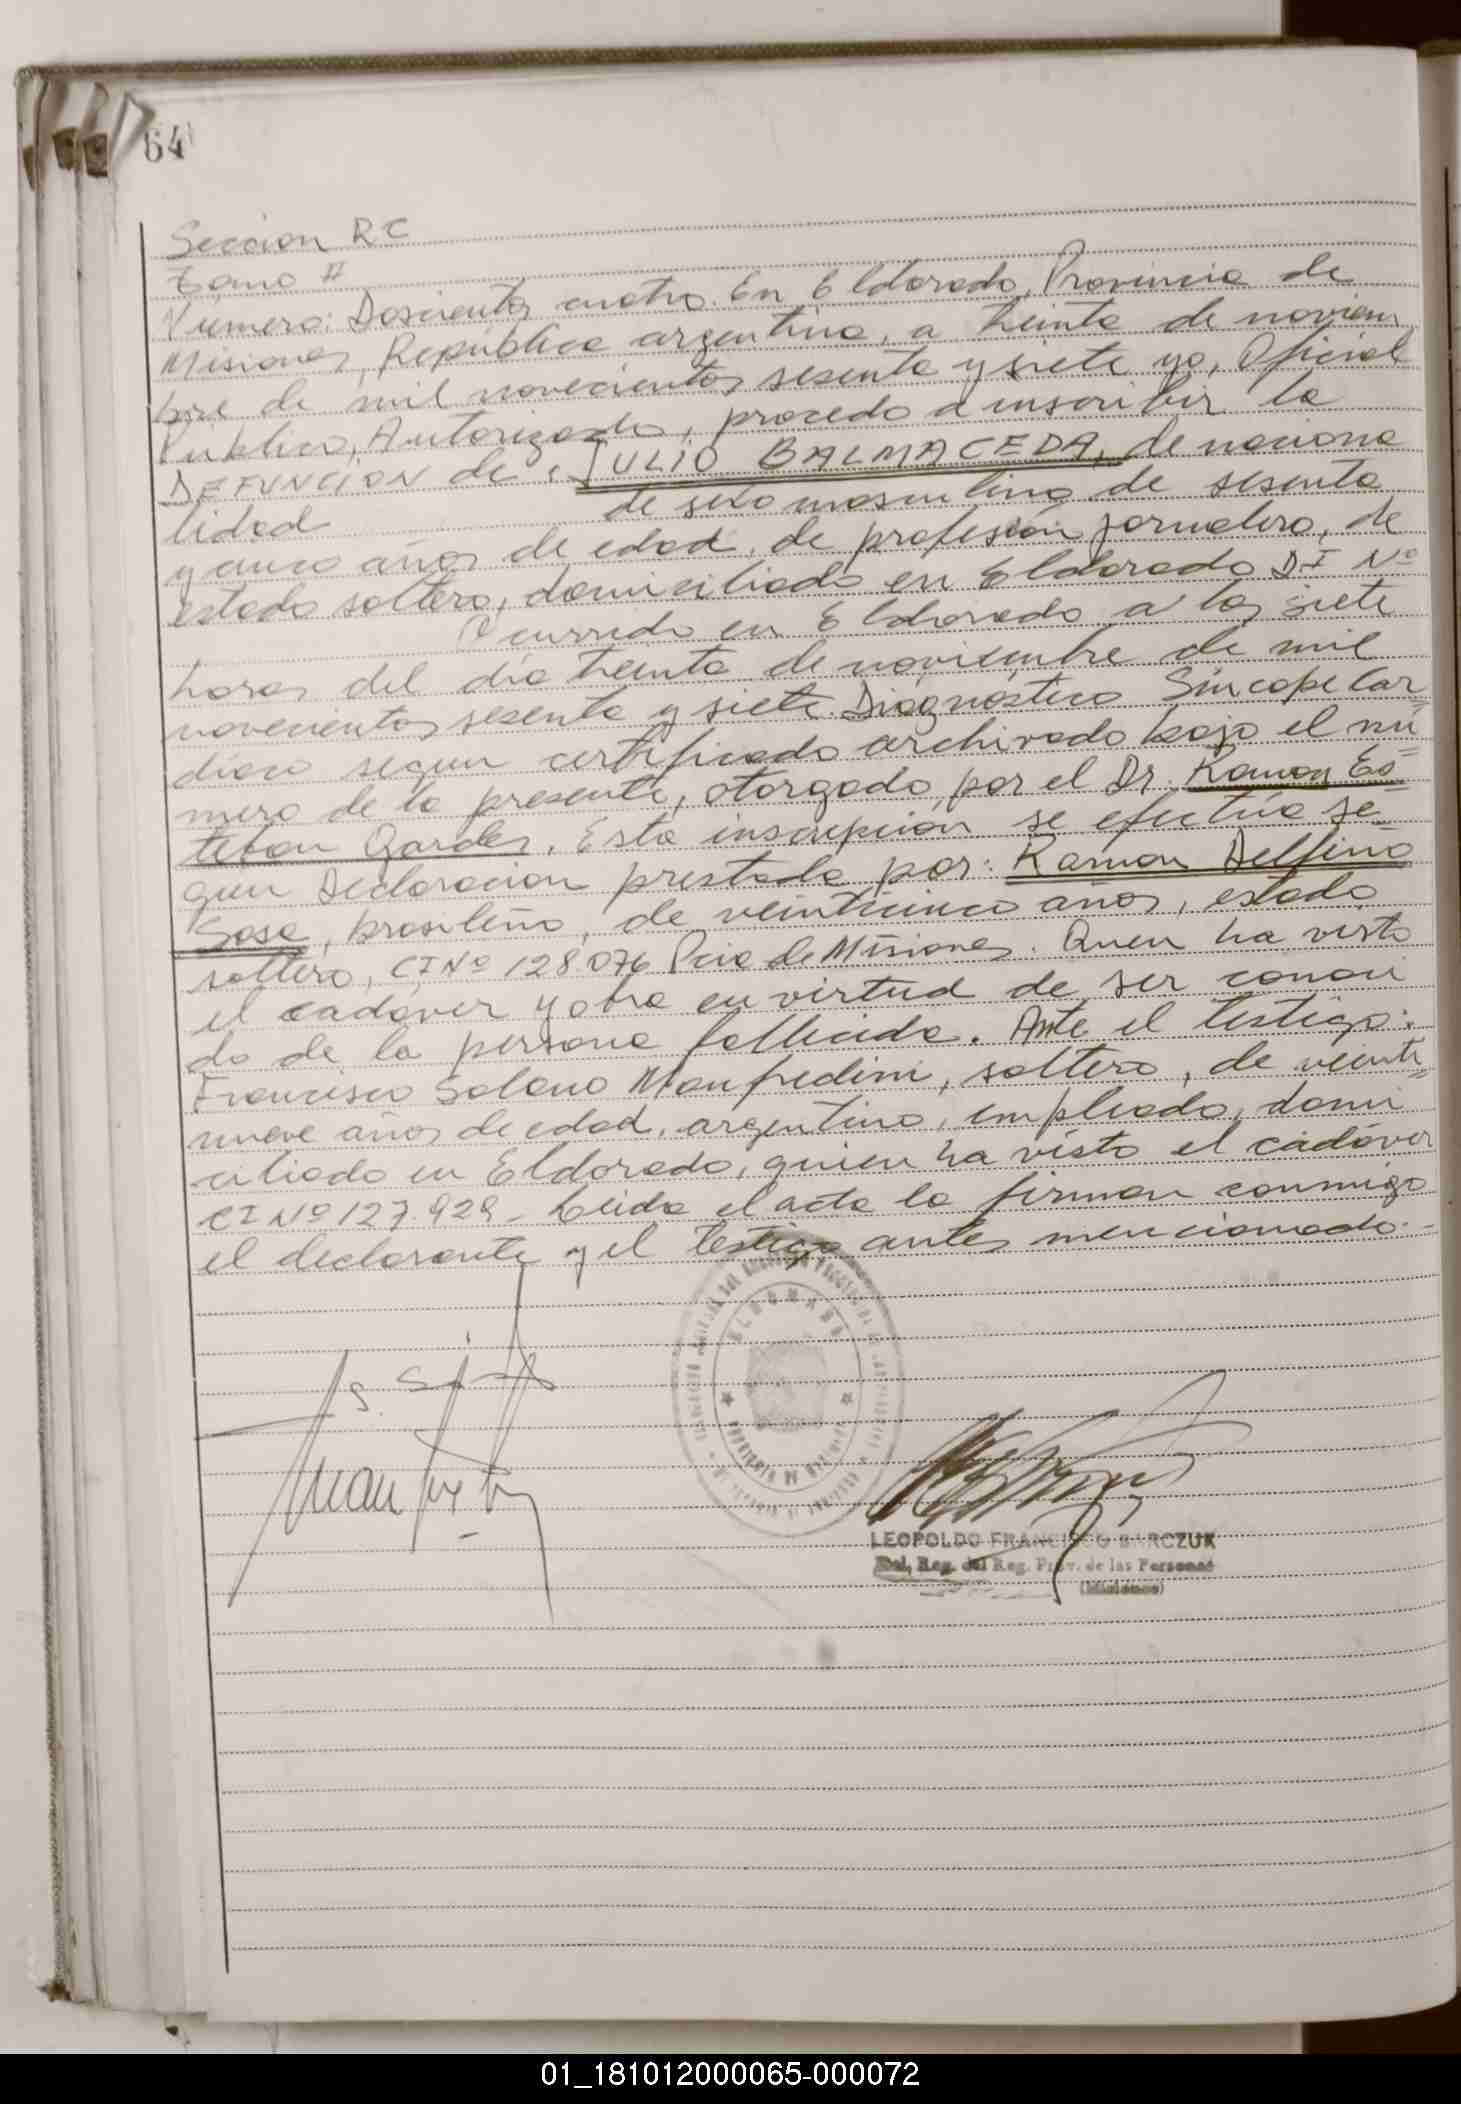 64
Sección RC
Tomo II
Número: Doscientos cuatro. En Eldorado, Provincia de
Misiones, República argentina, a treinta de noviem
bre de mil novecientos sesenta y siete yo, Oficial
Publico, Autorizado, procedo a inscribir la
DEFUNCION de: JULIO BALMACEDA, de naciona
lidad de sexo masculino de sesenta
y cinco años de edad, de profesión jornalero, de
estado soltero, domiciliado en Eldorado DI Nº
Ocurrido en Eldorado a las siete
horas del dia treinta de noviembre de mil
novecientos sesenta y siete. Diagnóstico Síncope Car=
diaco según certificado archivado bajo el nú=
mero de la presente, otorgado por el Dr. Ramon Es=
teban Gardes. Esta inscripcion se efectúa se=
gun Declaracion prestada por: Ramon Delfino
Sosa, brasileño, de veinticinco años, estado
soltero, CI Nº 128.076 Pcia de Misiones. Quien ha visto
el cadáver y obra en virtud de ser conoci
do de la persona fallecida. Ante el testigo:
Francisco Solano Manfredini, soltero, de veinti=
nueve años de edad, argentino, empleado, domi
ciliado en Eldorado, quien ha visto el cadáver
CI Nº 127.929 - Leida el acta la firman conmigo
el declarante y el testigo antes mencionado.-
ELDORADO
LEOPOLDO FRANCISCO BARCZUK
Del. Reg. del Reg. Prov. de las Personas
(Misiones)
01_181012000065-000072